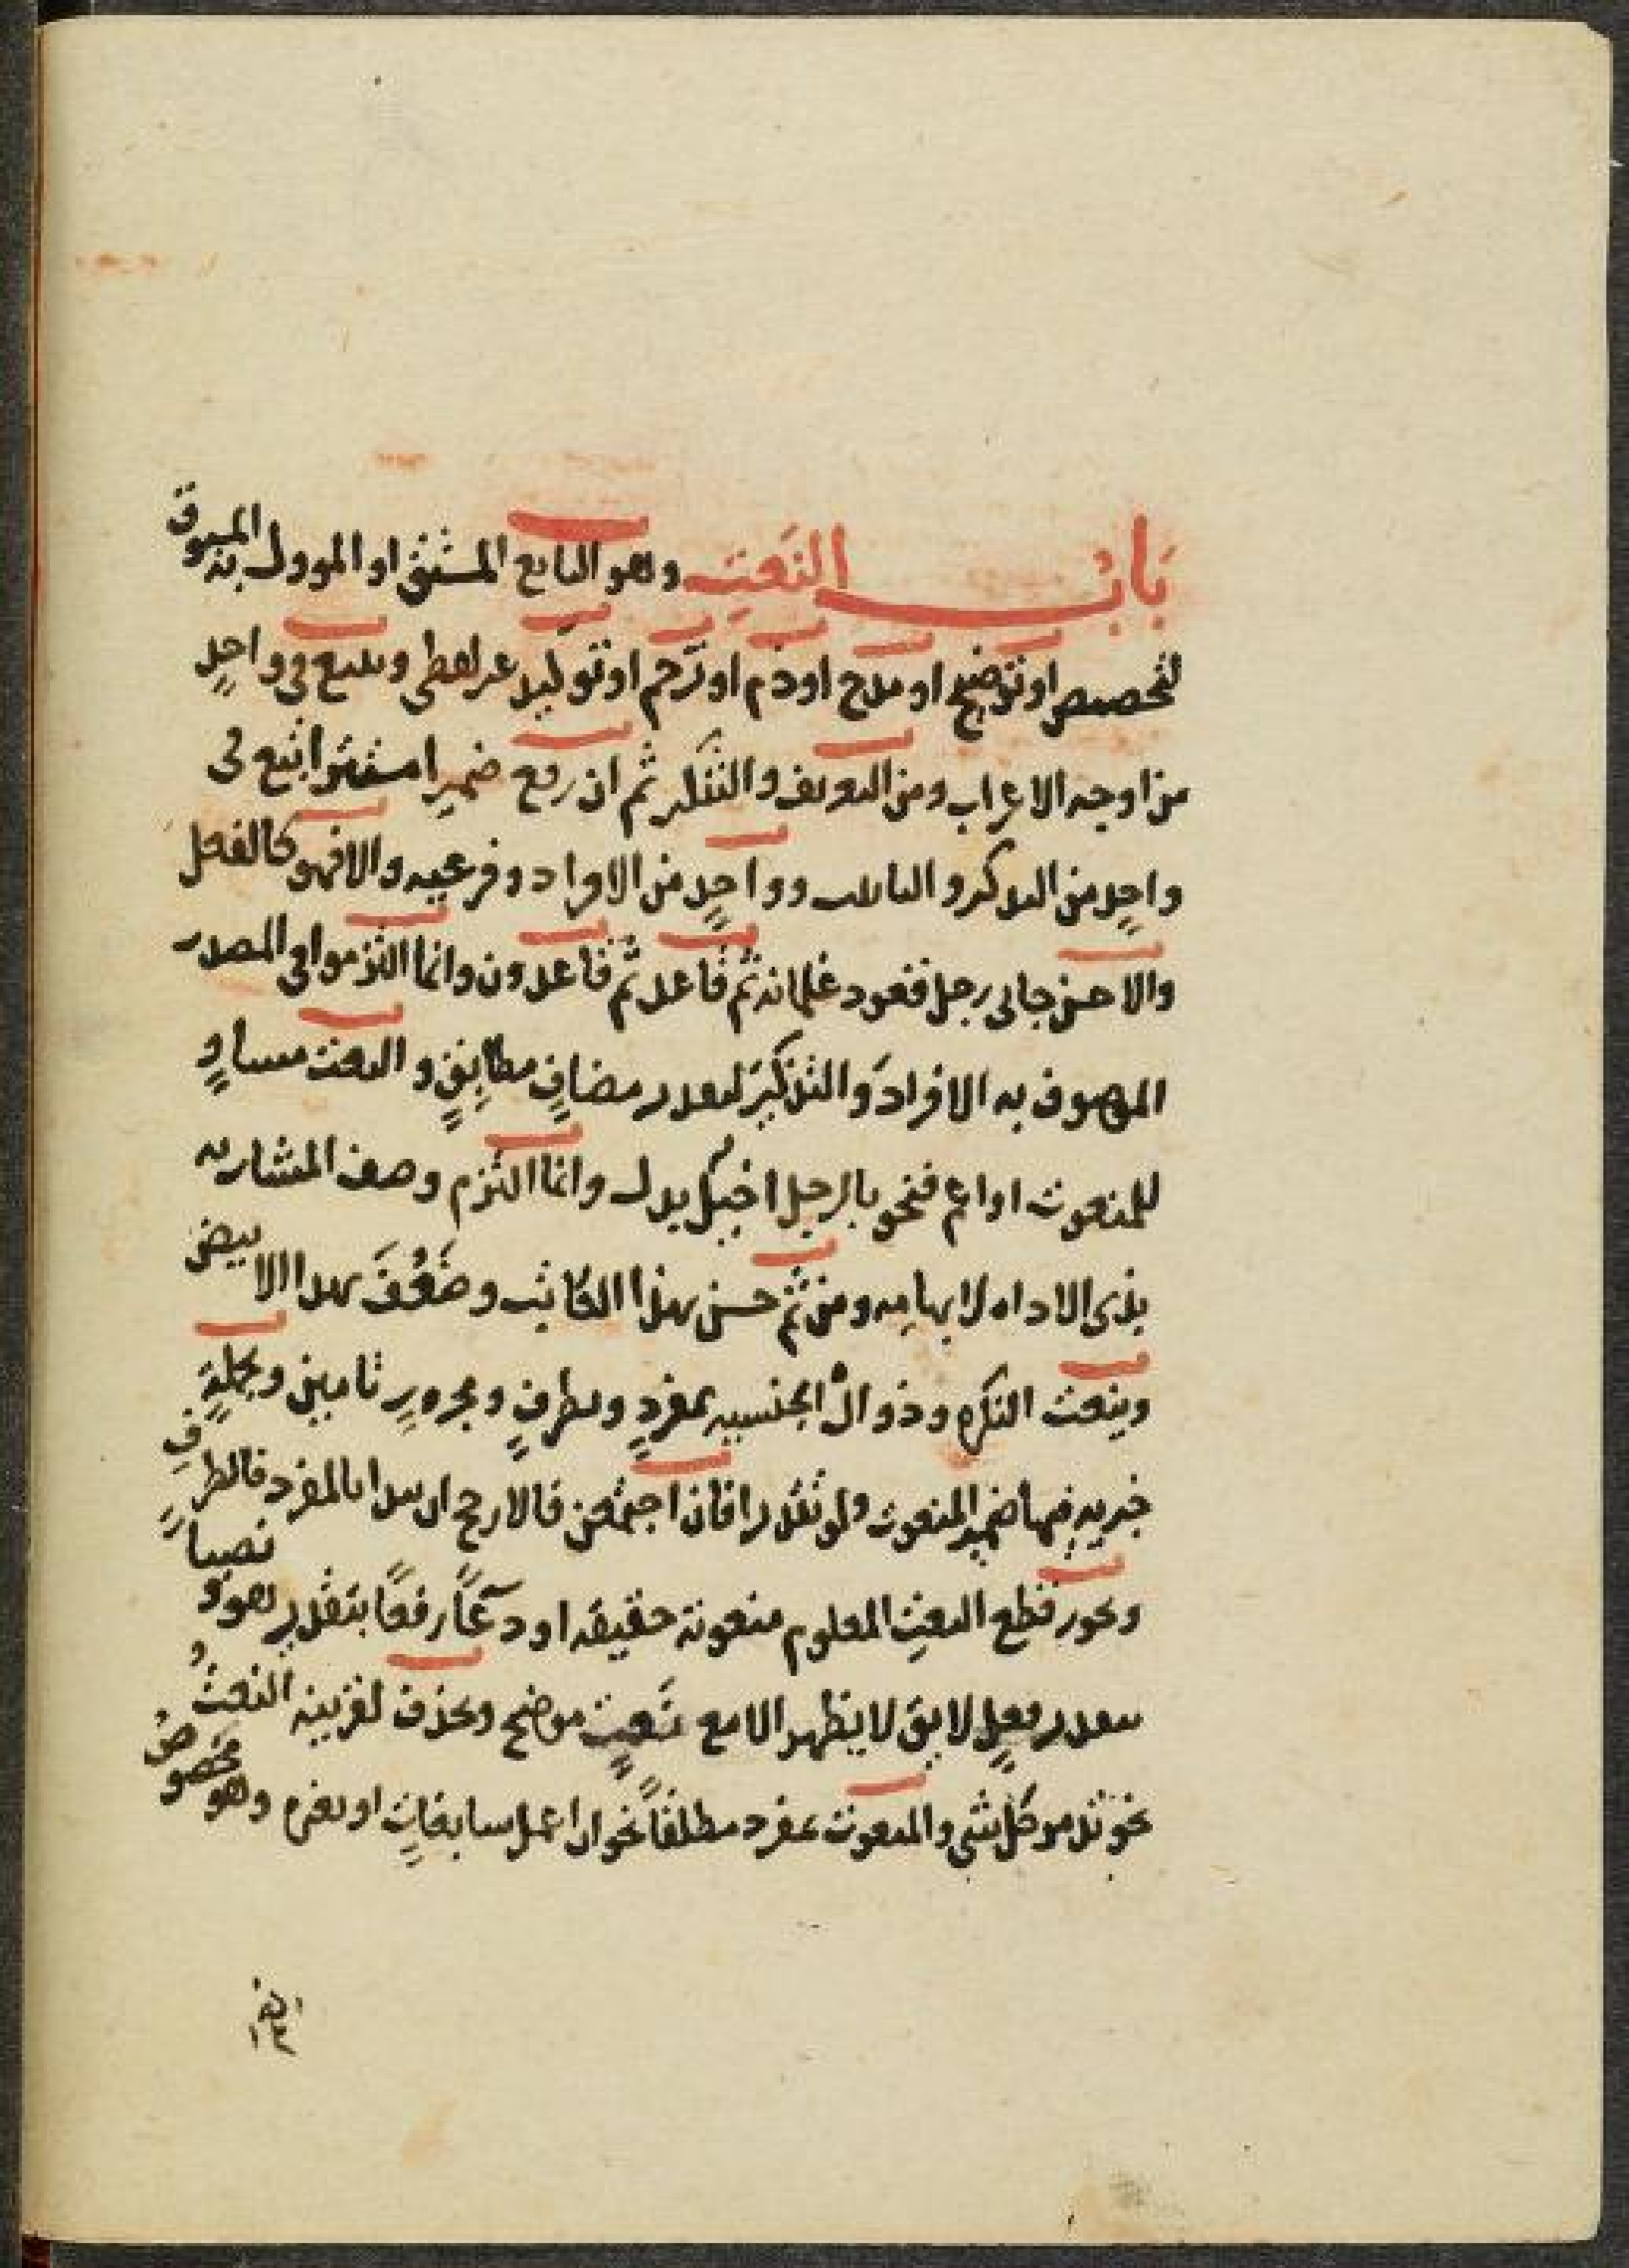 باب النعت وهو التابع المشتق او الموول به المسوق
لتخصيص او توضيح او مدح او ذم او ترحم او توكيد غير لفظي ويتبع في واحدٍ
من اوجه الاعراب ومن التعريف والتنكير ثم ان رفع ضميرا مستترا اتبع في
واحدٍ من التذكير والتانيث وواحدٍ من الافراد وفرعيه والا فهو كالفعل
والاحسن جاني رجل قعود غلمانه ثم قاعد ثم قاعدون وانما التزموا في المصدر
الموصوف به الافرادَ والتذكيرَ لتقدير مضافٍ مطابِقٍ والنعت مساوٍ
للمنعوت او اعم فنحو بالرجل اخيك بدل وانما التزم وصف المشار به
بذي الاداه لابهامه ومن ثم حسن بهذا الكاتب وضَعُفَ بهذا الابيض
وينعت النكره وذو ال الجنسيه بمفردٍ وبظرفٍ ومجرورٍ تامين وبجملةٍ
خبريهٍ فيها ضمير المنعوت ولو تقديرا فان اجتمعن فالارجح ان يبدا بالمفرد فالظرفِ
ويجوز قطع النعتِ المعلوم منعوته حقيقه او دعآءً رفعًا بتقدير هو ونصبا
بتقدير فعلٍ لايق لا يظهر الا مع نعتٍ موضح ويحذف لقرينه النعتُ
نحو تدمر كل شي والمنعوت بمفرد مطلقًا نحو ان اعمل سابغاتٍ او بغيره وهو مخصوصٌ